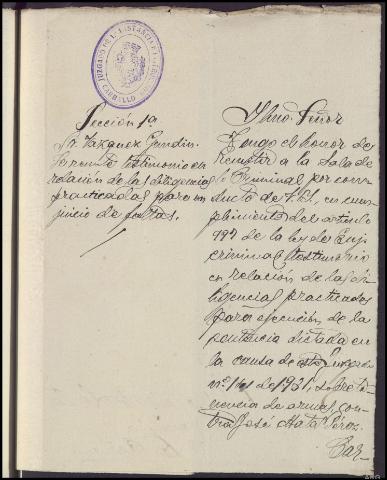 JUZGADO DE 1ª INSTANCIA E INSTRUCCIÓN
CARBALLO
Sección 1ª
Sr. Vázquez Gundin
testimonio en
relación de las diligencias
practicadas para un
juicio de faltas.
Ilmo. Señor
Tengo el honor de
remitir a la Sala de
lo Criminal por con-
ducto de V.I., en cum-
plimiento del artículo
997 de la ley de Enj.
criminal testimonio
en relación de las di-
ligencias practicadas
para ejecución de la
sentencia dictada en
la causa de este Juzgado
nº 141 de 1931, sobre te-
nencia de armas, con-
tra José Mata Pérez.
Car-